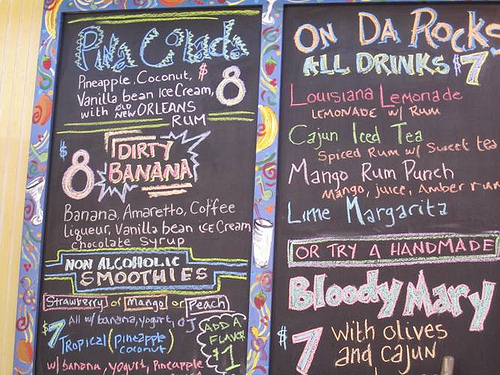 Piña Colada
Pineapple, Coconut, $8
Vanilla bean Ice Cream,
with OLD NEW ORLEANS
RUM
$8 DIRTY
BANANA
Banana, Amaretto, Coffee
liqueur, Vanilla bean Ice Cream
chocolate syrup
NON ALCOHOLIC
SMOOTHIES
Strawberry or Mango or Peach
$7 All w/ banana, yogurt, OJ
TROPICAL (pineapple
coconut)
w/ banana, yogurt, pineapple
ADD A
FLAVOR
$1
ON DA ROCKS
ALL DRINKS $7
Louisiana Lemonade
LEMONADE w/ Rum
Cajun Iced Tea
Spiced Rum w/ Sweet tea
Mango Rum Punch
mango, juice, Amber rum
Lime Margarita
OR TRY A HANDMADE
Bloody Mary
$7 with olives
and cajun